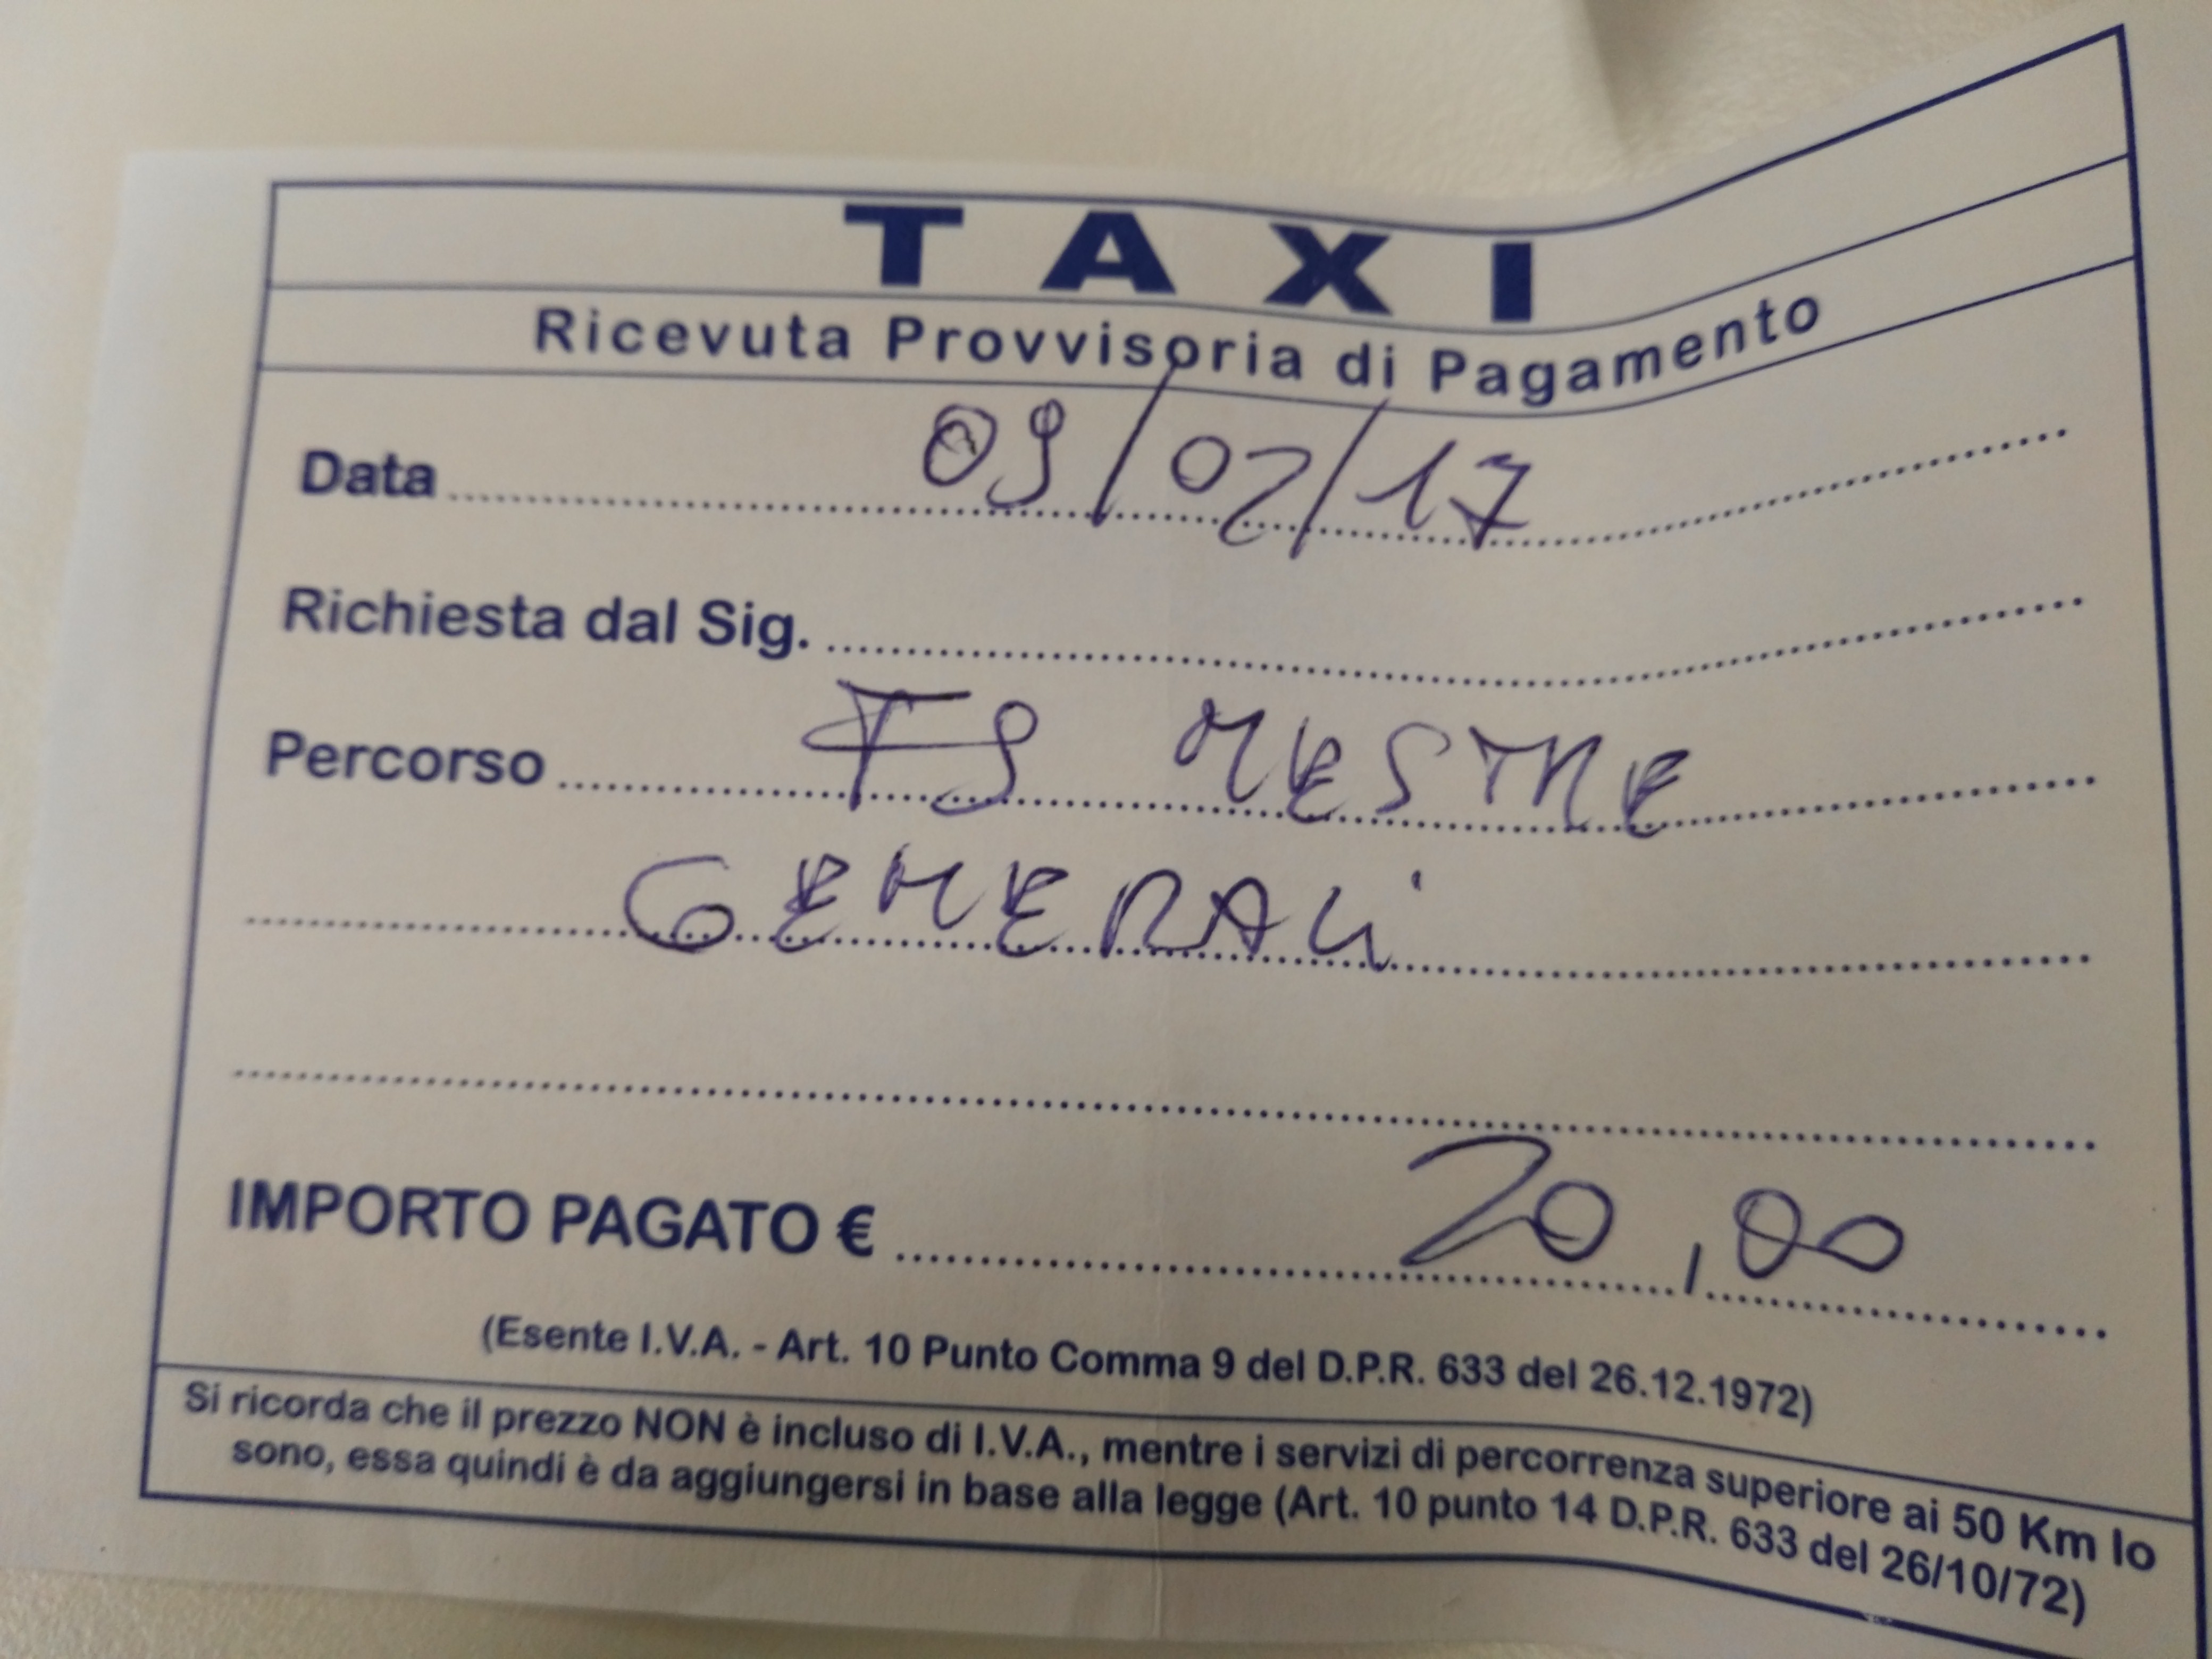 TAXI
Ricevuta Provvisoria di Pagamento
Data 09/02/17
Richiesta dal Sig.
Percorso FS MESTRE
GENERALI
IMPORTO PAGATO € 20,00
(Esente I.V.A. - Art. 10 Punto Comma 9 del D.P.R. 633 del 26.12.1972)
Si ricorda che il prezzo NON è incluso di I.V.A., mentre i servizi di percorrenza superiore ai 50 Km lo
sono, essa quindi è da aggiungersi in base alla legge (Art. 10 punto 14 D.P.R. 633 del 26/10/72)